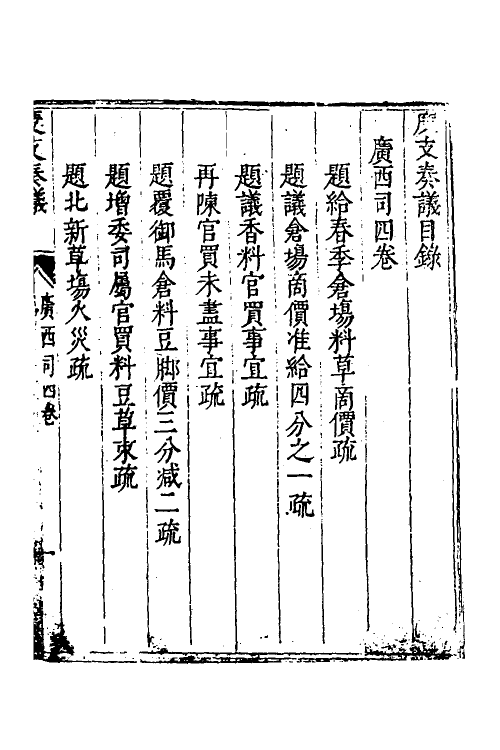 度支奏議目錄
廣西司四卷
題給春季倉場料草商價疏
題議倉場商價准給四分之一疏
題議香料官買事宜疏
再陳官買未盡事宜疏
題覆御馬倉料豆腳價三分減二疏
題增委司屬官買料豆草束疏
題北新草場火災疏
度支奏議
廣西司四卷
一